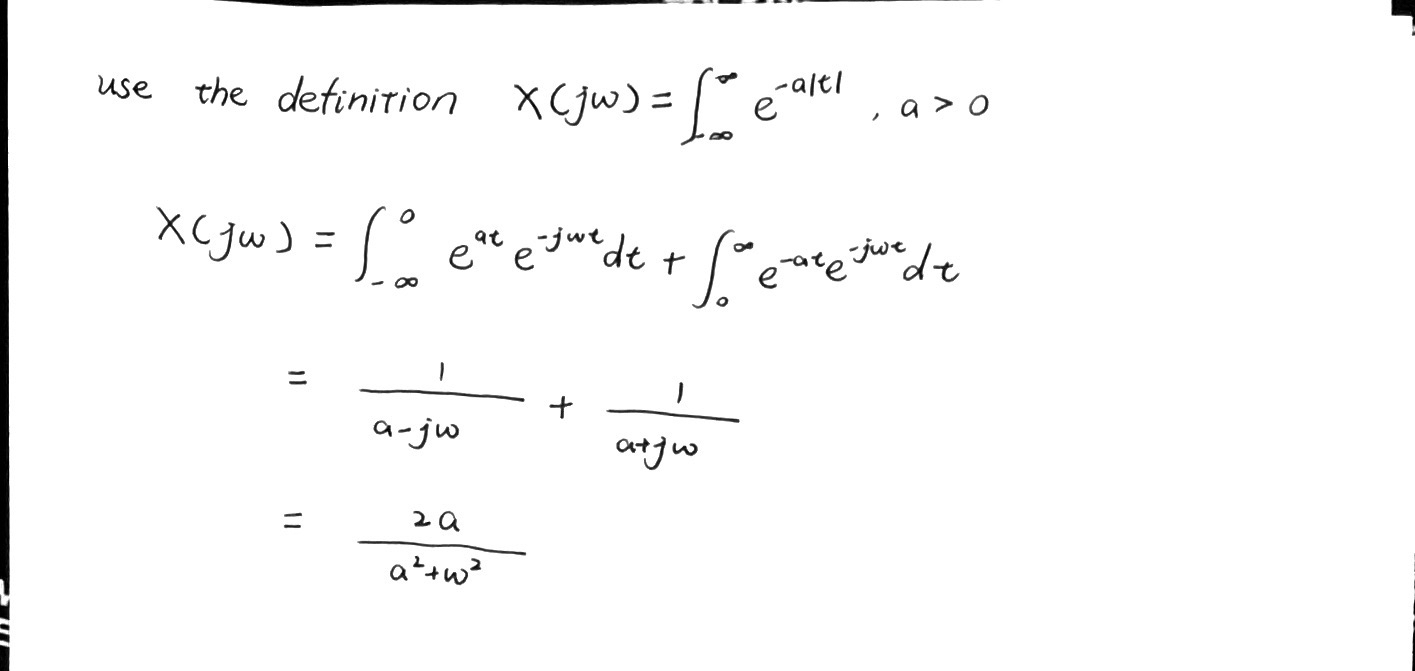 use the definition X(jω) = ∫_{-∞}^{∞} e^{-a|t|} , a > 0
X(jω) = ∫_{-∞}^{0} e^{at} e^{-jωt} dt + ∫_{0}^{∞} e^{-at} e^{-jωt} dt
= \frac{1}{a-jω} + \frac{1}{a+jω}
= \frac{2a}{a^2+ω^2}